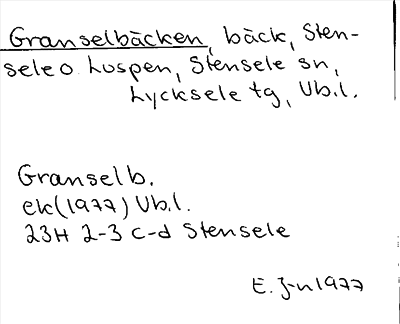 Granselbäcken, bäck, Sten-
sele o. Luspen, Stensele sn,
Lycksele tg, Vb.l.
Granselb.
ek(1977) Vb.l.
23H 2-3 c-d Stensele
E. J-n 1977